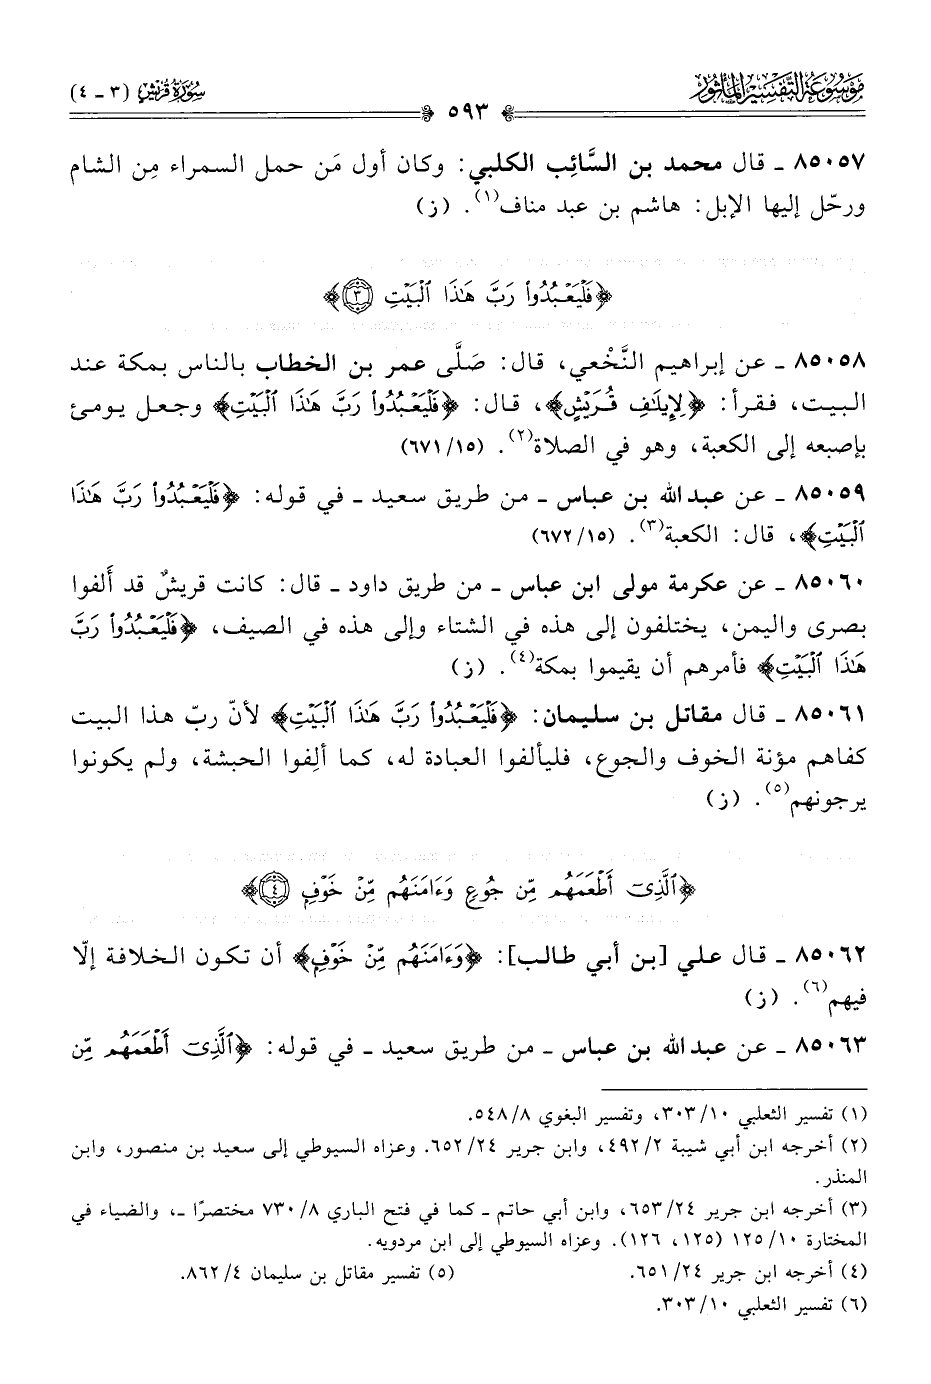 موسوعة التفسير المأثور
٥٩٣
سورة قريش (٣ - ٤)
٨٥٠٥٧ ـ قال محمد بن السَّائب الكلبي: وكان أول مَن حمل السمراء مِن الشام
ورحّل إليها الإبل: هاشم بن عبد مناف(١). (ز)
﴿فَلْيَعْبُدُوا۟ رَبَّ هَٰذَا ٱلْبَيْتِ ٣﴾
٨٥٠٥٨ ـ عن إبراهيم النَّخْعي، قال: صَلَّى عمر بن الخطاب بالناس بمكة عند
البيت، فقرأ: ﴿لِإِيلَٰفِ قُرَيْشٍ﴾، قال: ﴿فَلْيَعْبُدُوا۟ رَبَّ هَٰذَا ٱلْبَيْتِ﴾ وجعل يومئ
بإصبعه إلى الكعبة، وهو في الصلاة(٢). (٦٧١/١٥)
٨٥٠٥٩ ـ عن عبد الله بن عباس ـ من طريق سعيد ـ في قوله: ﴿فَلْيَعْبُدُوا۟ رَبَّ هَٰذَا
ٱلْبَيْتِ﴾، قال: الكعبة(٣). (٦٧٢/١٥)
٨٥٠٦٠ ـ عن عكرمة مولى ابن عباس ـ من طريق داود ـ قال: كانت قريشٌ قد أَلفوا
بصرى واليمن، يختلفون إلى هذه في الشتاء وإلى هذه في الصيف، ﴿فَلْيَعْبُدُوا۟ رَبَّ
هَٰذَا ٱلْبَيْتِ﴾ فأمرهم أن يقيموا بمكة(٤). (ز)
٨٥٠٦١ ـ قال مقاتل بن سليمان: ﴿فَلْيَعْبُدُوا۟ رَبَّ هَٰذَا ٱلْبَيْتِ﴾ لأنّ ربّ هذا البيت
كفاهم مؤنة الخوف والجوع، فليألفوا العبادة له، كما ألِفوا الحبشة، ولم يكونوا
يرجونهم(٥). (ز)
﴿ٱلَّذِىٓ أَطْعَمَهُم مِّن جُوعٍ وَءَامَنَهُم مِّنْ خَوْفٍ ٤﴾
٨٥٠٦٢ ـ قال علي [بن أبي طالب]: ﴿وَءَامَنَهُم مِّنْ خَوْفٍ﴾ أن تكون الخلافة إلّا
فيهم(٦). (ز)
٨٥٠٦٣ ـ عن عبد الله بن عباس ـ من طريق سعيد ـ في قوله: ﴿ٱلَّذِىٓ أَطْعَمَهُم مِّن
(١) تفسير الثعلبي ٣٠٣/١٠، وتفسير البغوي ٥٤٨/٨.
(٢) أخرجه ابن أبي شيبة ٤٩٢/٢، وابن جرير ٦٥٢/٢٤. وعزاه السيوطي إلى سعيد بن منصور، وابن
المنذر.
(٣) أخرجه ابن جرير ٦٥٣/٢٤، وابن أبي حاتم ـ كما في فتح الباري ٧٣٠/٨ مختصرًا ـ، والضياء في
المختارة ١٢٥/١٠ (١٢٥، ١٢٦). وعزاه السيوطي إلى ابن مردويه.
(٤) أخرجه ابن جرير ٦٥١/٢٤. (٥) تفسير مقاتل بن سليمان ٨٦٢/٤.
(٦) تفسير الثعلبي ٣٠٣/١٠.